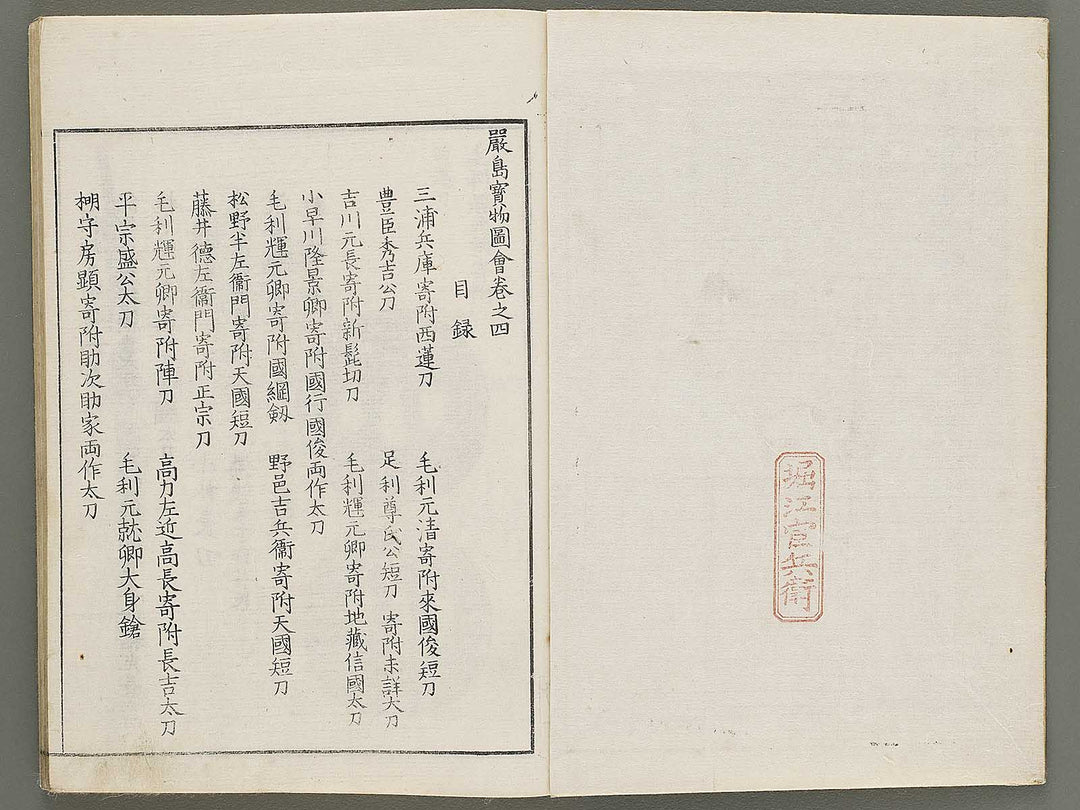 堀江官兵衛
嚴島寳物圖會卷之四
目録
三浦兵庫寄附西蓮刀　毛利元清寄附來國俊短刀
豊臣秀吉公刀　足利尊氏公短刀　寄附未詳大刀
吉川元長寄附新髭切刀　毛利輝元卿寄附地藏信國太刀
小早川隆景卿寄附國行國俊両作太刀
毛利輝元卿寄附國綱剱　野邑吉兵衞寄附天國短刀
松野半左衞門寄附天國短刀
藤井德左衞門寄附正宗刀
毛利輝元卿寄附陣刀　高力左近高長寄附長吉太刀
平宗盛公太刀　毛利元就卿大身鎗
棚守房顕寄附助次助家両作太刀